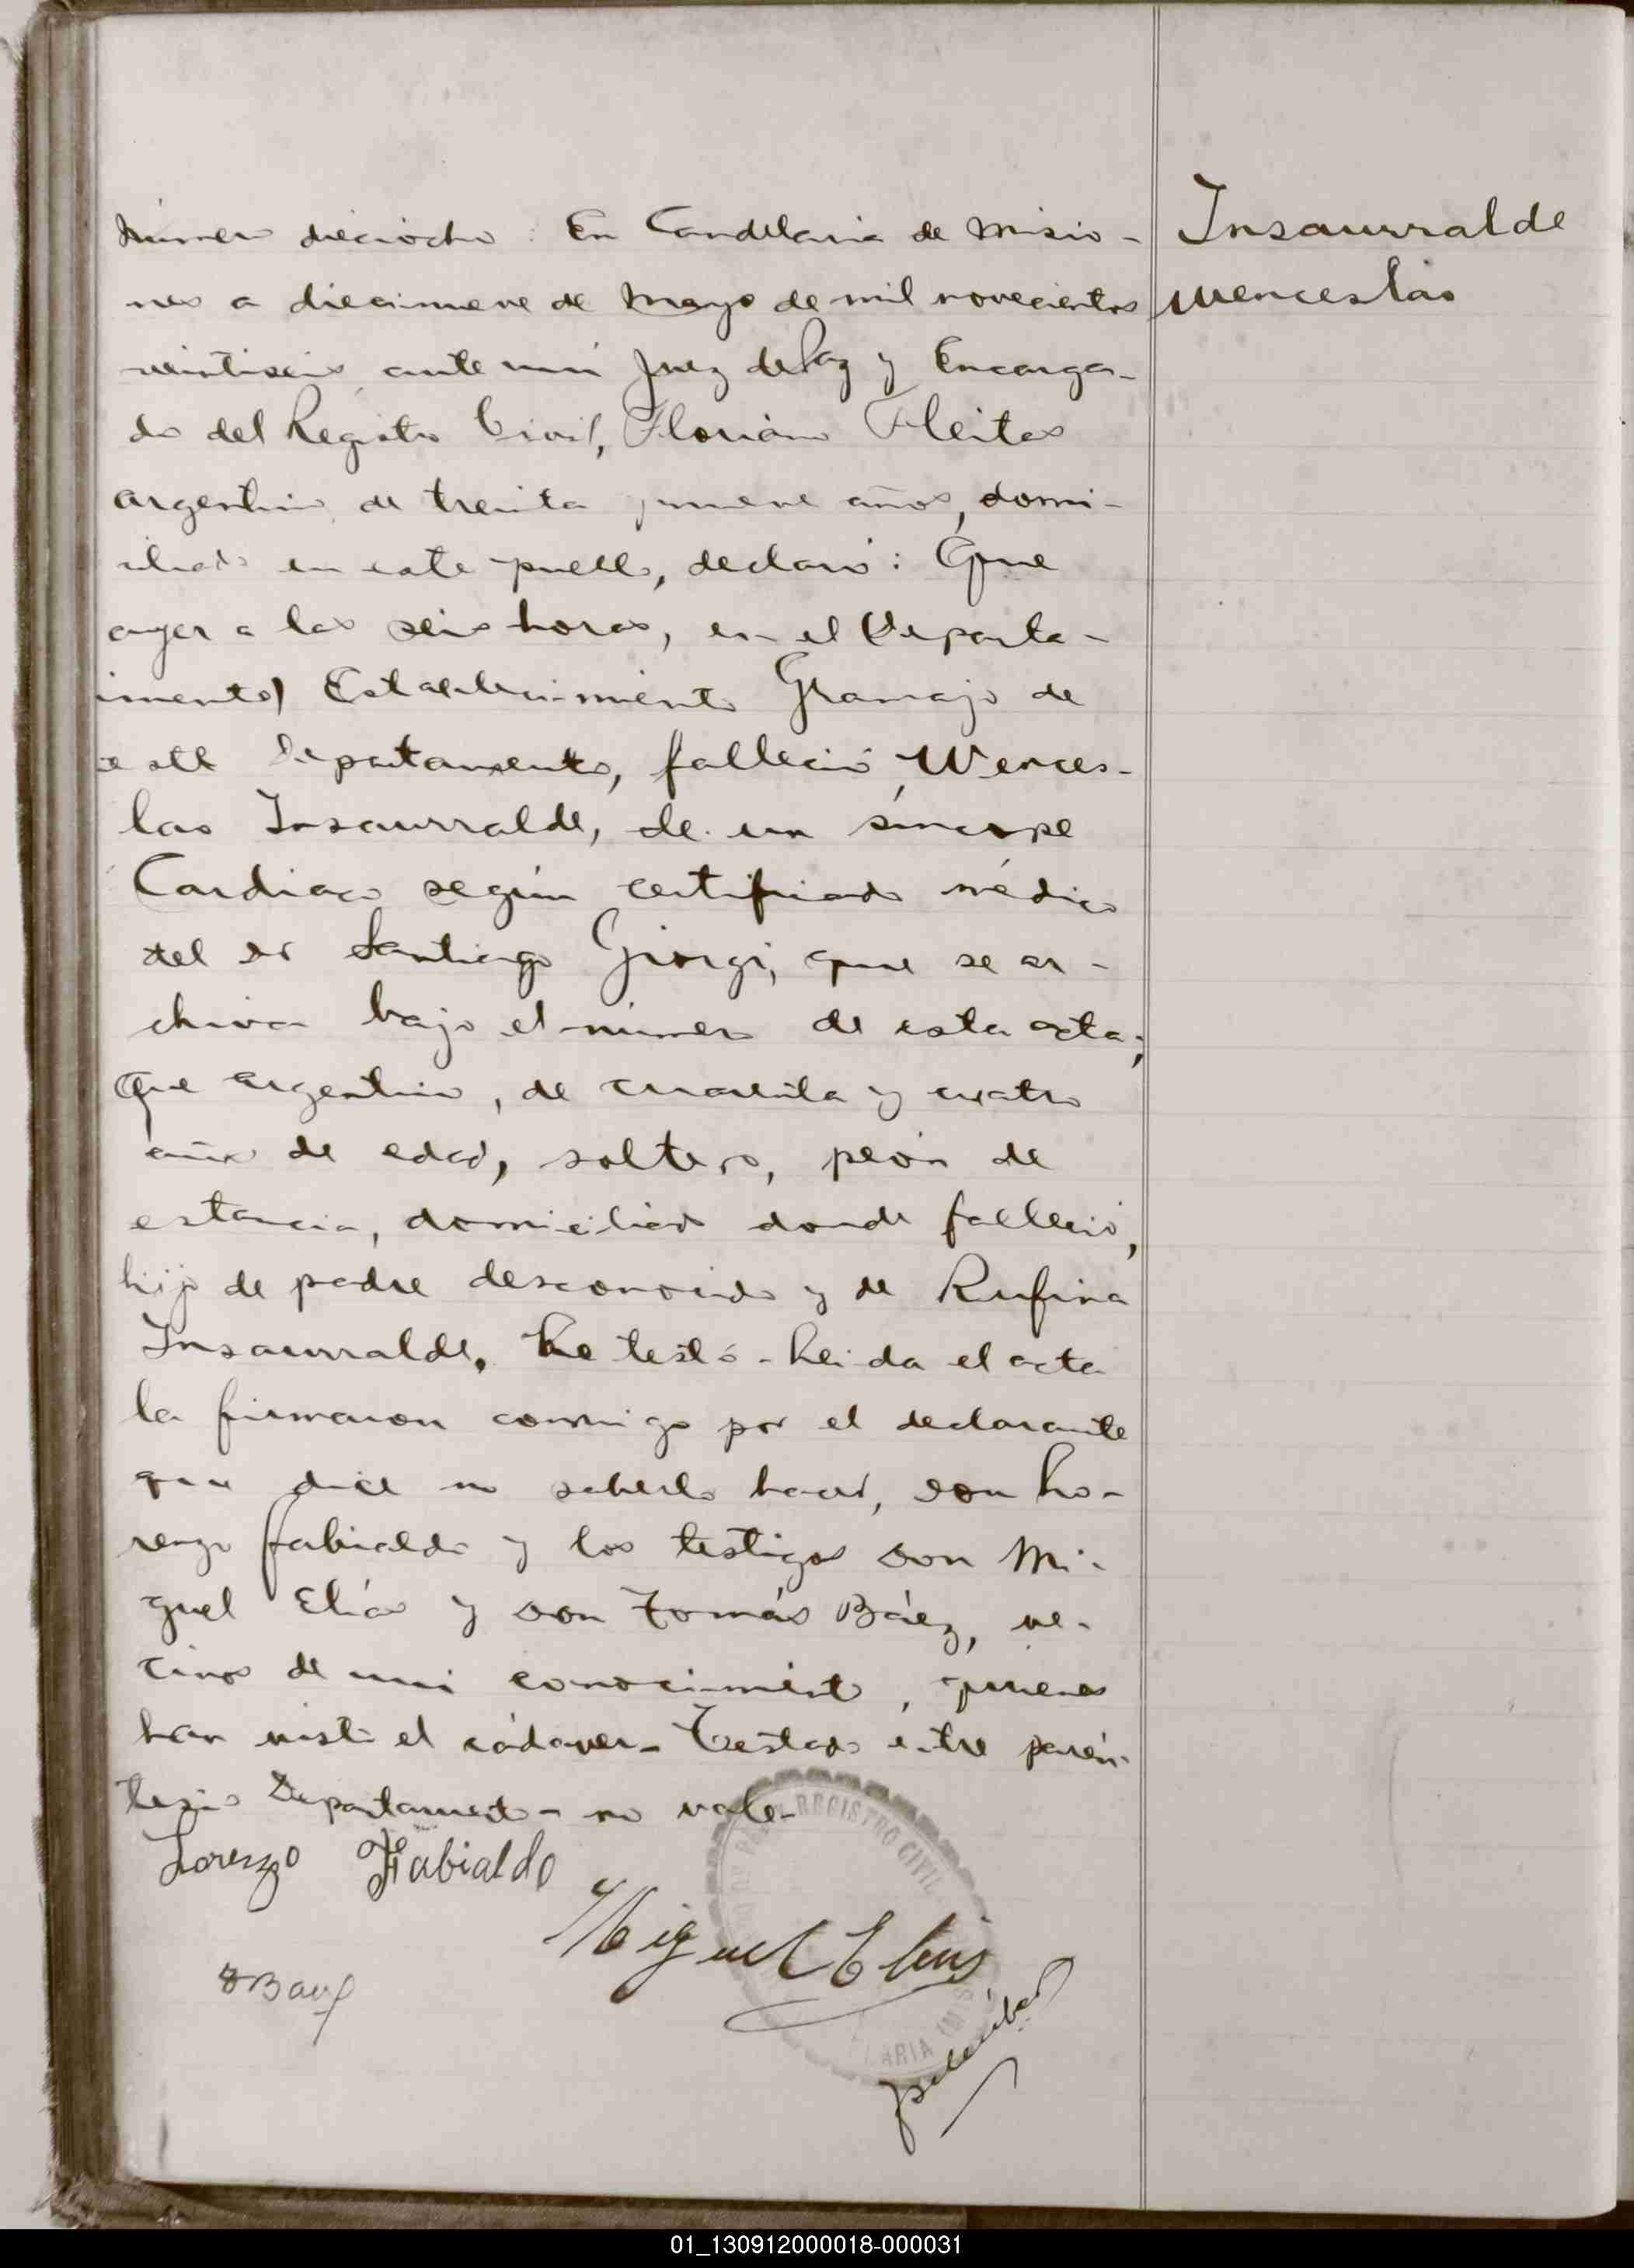 Número dieciocho: En Candelaria de Misio-
nes a diecinueve de Mayo de mil novecientos
veintiseis ante mí Juez de Paz y Encarga-
do del Registro Civil, Florián Fleitas
argentino, de treinta y nueve años, domi-
ciliado en este pueblo, declaró: Que
ayer a las seis horas, en el (Departa-
mento) Establecimiento Gramajo de
este Departamento, falleció Wences-
lao Insaurralde, de un síncope
Cardiaco según certificado médico
del Dr Santiago Giorgi, que se ar-
chiva bajo el número de esta acta;
Que argentino, de cuarenta y cuatro
años de edad, soltero, peón de
estancia, domiciliado donde falleció,
hijo de padre desconocido y de Rufina
Insaurralde. No testó. Leida el acta
la firmaron conmigo por el declarante
que dice no saberlo hacer, don Lo-
renzo Fabialdo y los testigos don Mi-
guel Elías y don Tomás Báez, ve-
cinos de mi conocimiento, quienes
han visto el cádaver- Testado entre parén-
tesis Departamento- no vale-
Insaurralde
Wenceslao
Lorenzo Fabialdo
Miguel Elias
TBaez
REGISTRO CIVIL
01_130912000018-000031